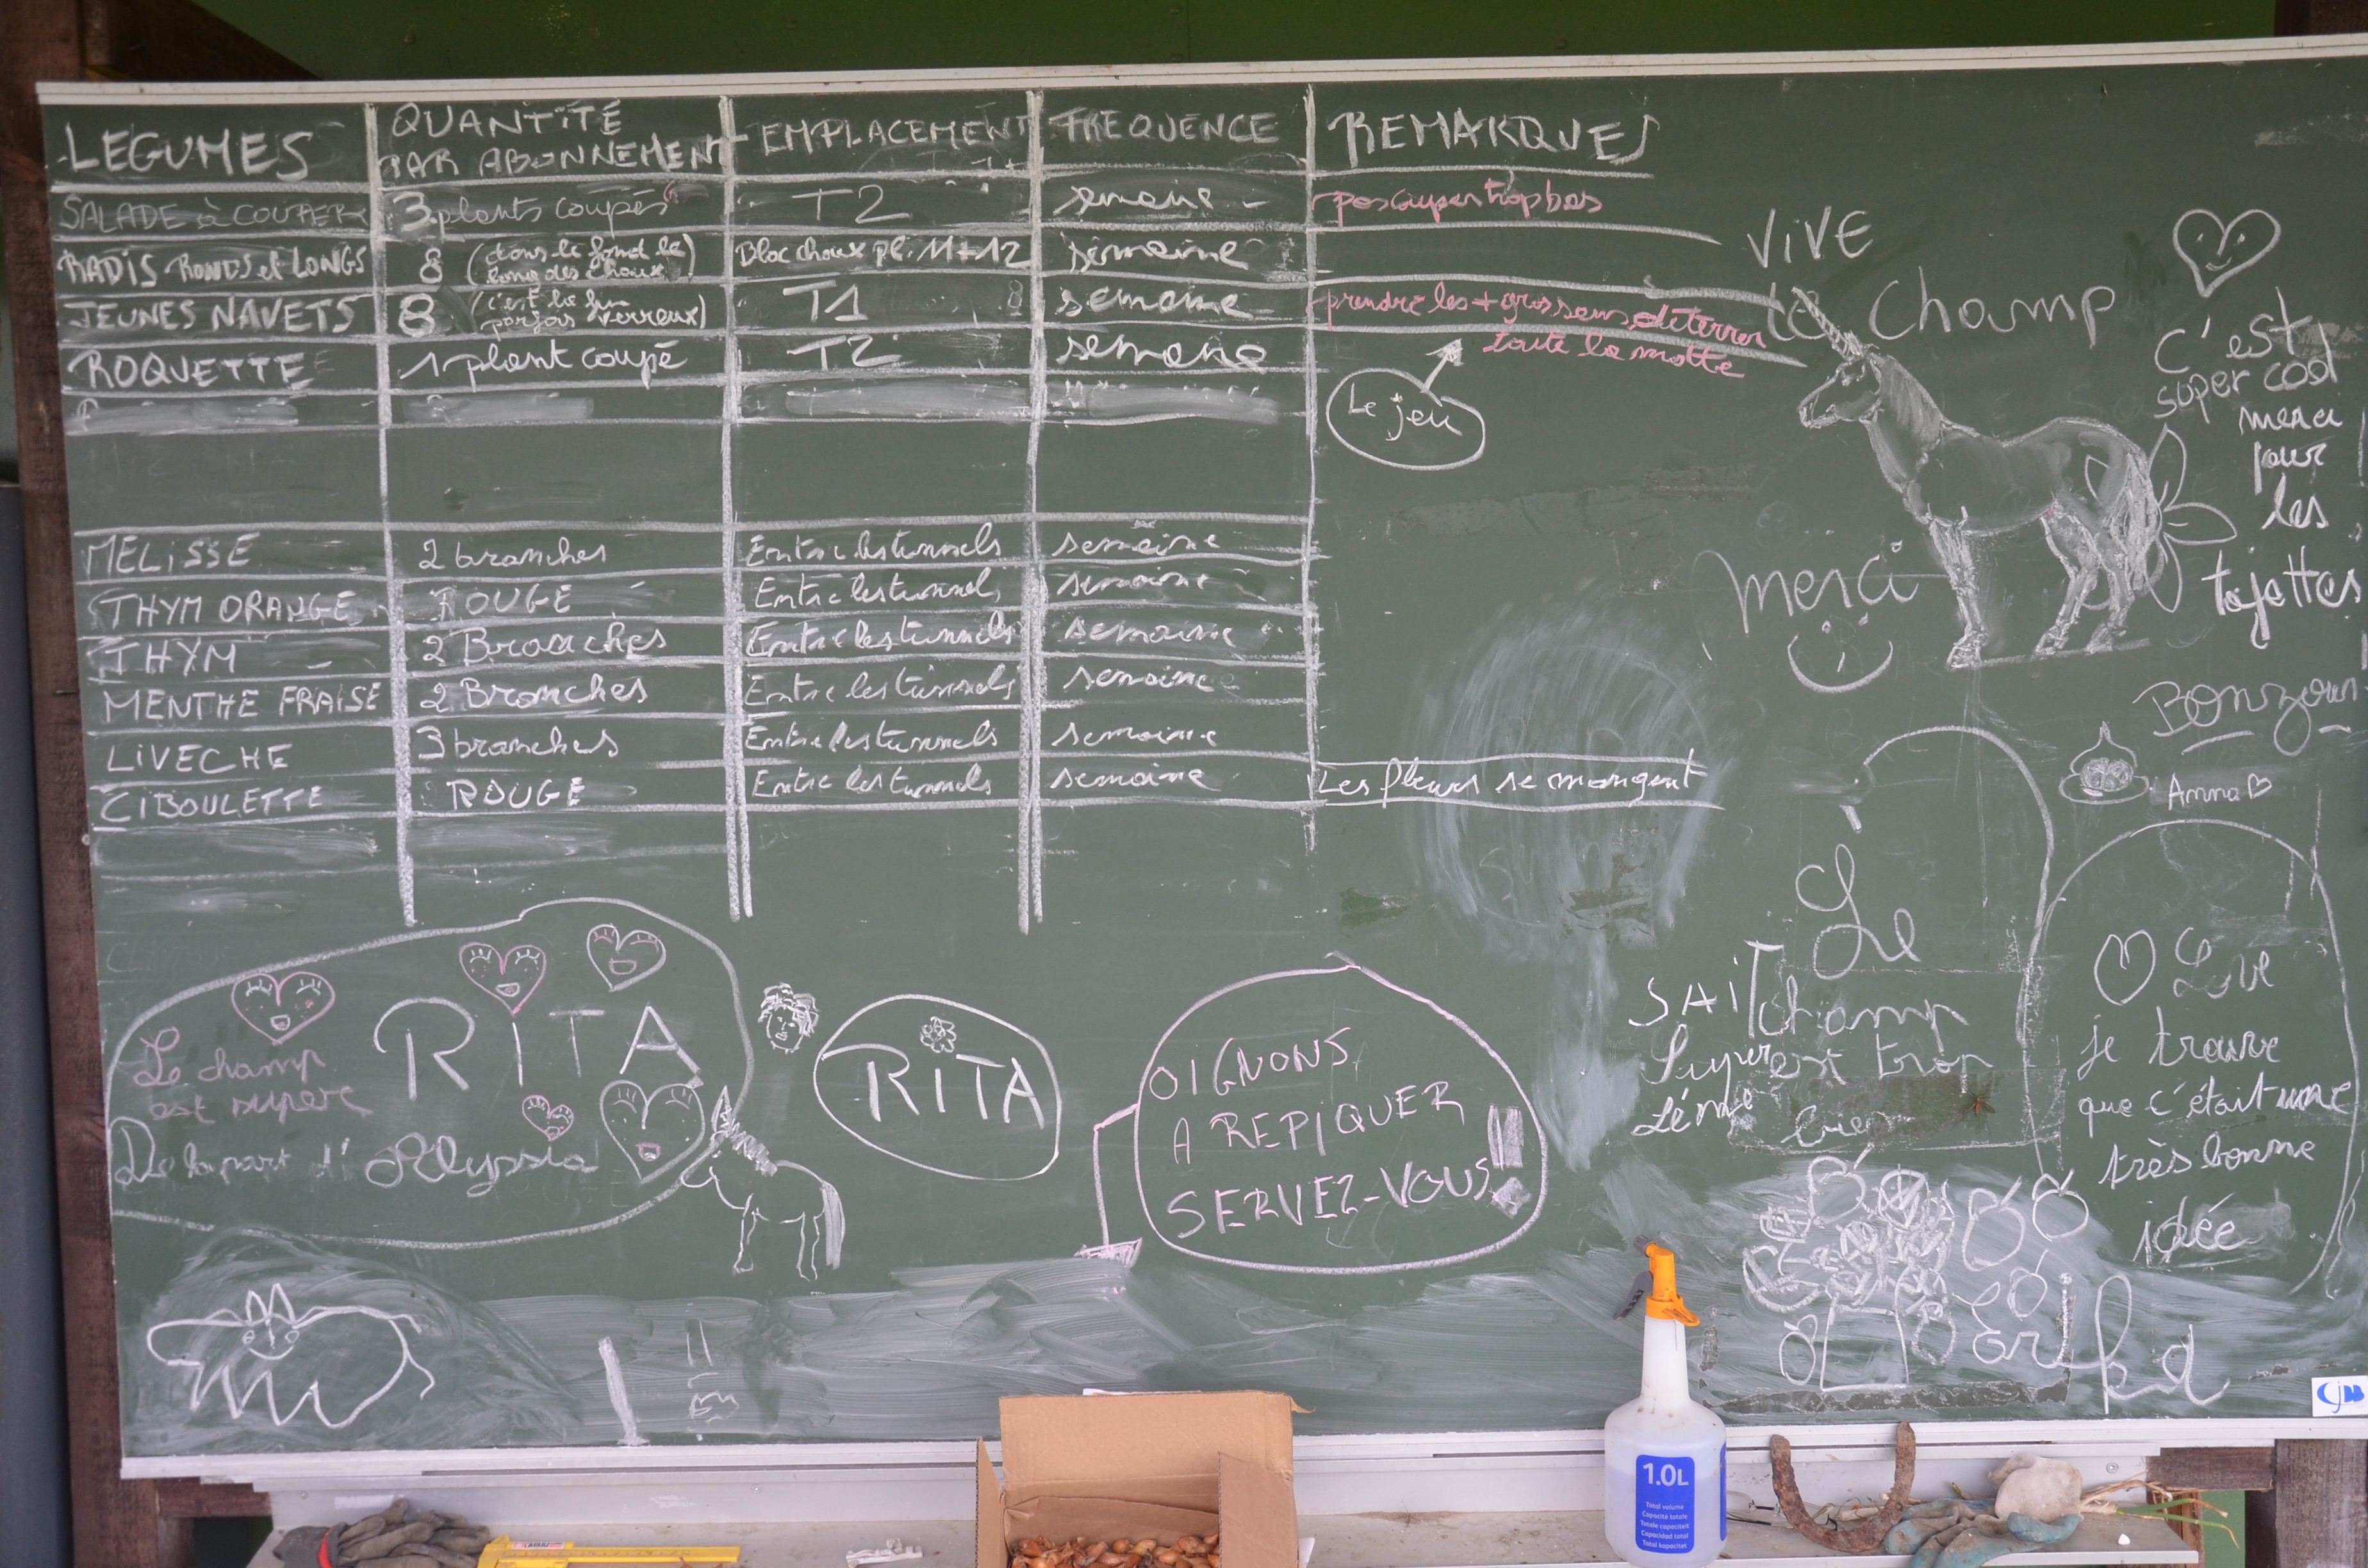 LEGUMES QUANTITÉ PAR ABONNEMENT EMPLACEMENT FREQUENCE REMARQUES
SALADE à COUPER 3 plants coupés T2 semaine pas couper trop bas
RADIS RONDS et LONGS 8 (dans le fond le long des choux) Bloc choux pl. 11+12 semaine
JEUNES NAVETS 8 (c'est la fin parfois verreux) T1 semaine prendre les + gros sans déterrer
toute la motte
ROQUETTE 1 plant coupé T2 semaine
Le jeu
MELISSE 2 branches Entre les tunnels semaine
THYM ORANGE ROUGE Entre les tunnels semaine
THYM 2 Branches Entre les tunnels semaine
MENTHE FRAISE 2 Branches Entre les tunnels semaine
LIVECHE 3 branches Entre les tunnels semaine
CIBOULETTE ROUGE Entre les tunnels semaine Les fleurs se mangent
VIVE
le Champ
C'est
super cool
merci
pour
les
tajettes
merci
Bonzour
Anna
RITA
Le champ
est supere
De la part d'Alyssia
RITA
OIGNONS
A REPIQUER
SERVEZ-VOUS!!
SAIT
Super
Le
champ
est trop
Love
je trouve
que c'était une
très bonne
idée
CJM
1.0L
Total volume
Capacité totale
Totale capaciteit
Capacidad total
Total kapacitet